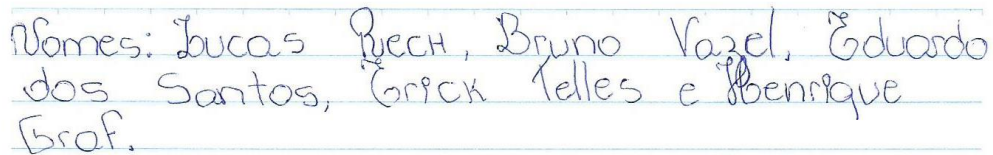 Nomes: Lucas Rech, Bruno Vazel, Eduardo
dos Santos, Erick Telles e Henrique
Graf.